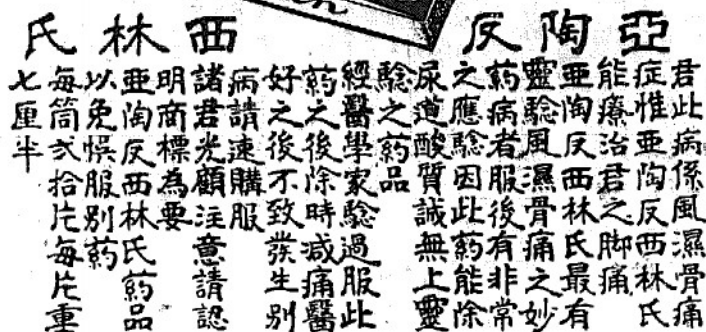 亞陶反西林氏
君此病係風濕骨痛
症惟亜陶反西林氏
能療治君之脚痛
亜陶反西林氏最有
靈驗風濕骨痛之妙
药病者服後有非常
之應驗因此药能除
尿道酸質誠無上靈
驗之药品
經醫學家驗過服此
药之後除時减痛醫
好之後不致發生別
病請速購服
諸君光顧注意請認
明商標為要
亜陶反西林氏药品
以免悞服別药
每筒弍拾片每片重
七厘半